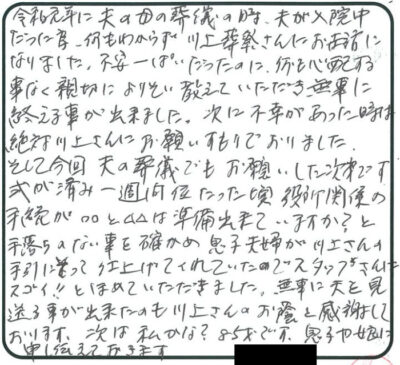 令和元年に夫の母の葬儀の時、夫が入院中
だった為、何もわからず川上葬祭さんにお世話に
なりました。不安一ぱいだったのに、何も心配する
事なく親切によりそい教えていただき無事に
終える事が出来ました。次に不幸があった時は
絶対川上さんにお願いするつもりでおりました。
そして今回 夫の葬儀でもお願いした次第です
式が済み一週間位たった頃 役所関係の
手続が○○と△△は準備出来ていますか?と
手落ちのない事を確かめ 息子夫婦が川上さんの
手引に従って仕上げてくれていたのでスタッフさんに
スゴイ!!とほめていただきました。無事に夫を見
送る事が出来たのも川上さんのお蔭と感謝して
おります。次は私かな?85才です。息子や娘に
申し伝えておきます